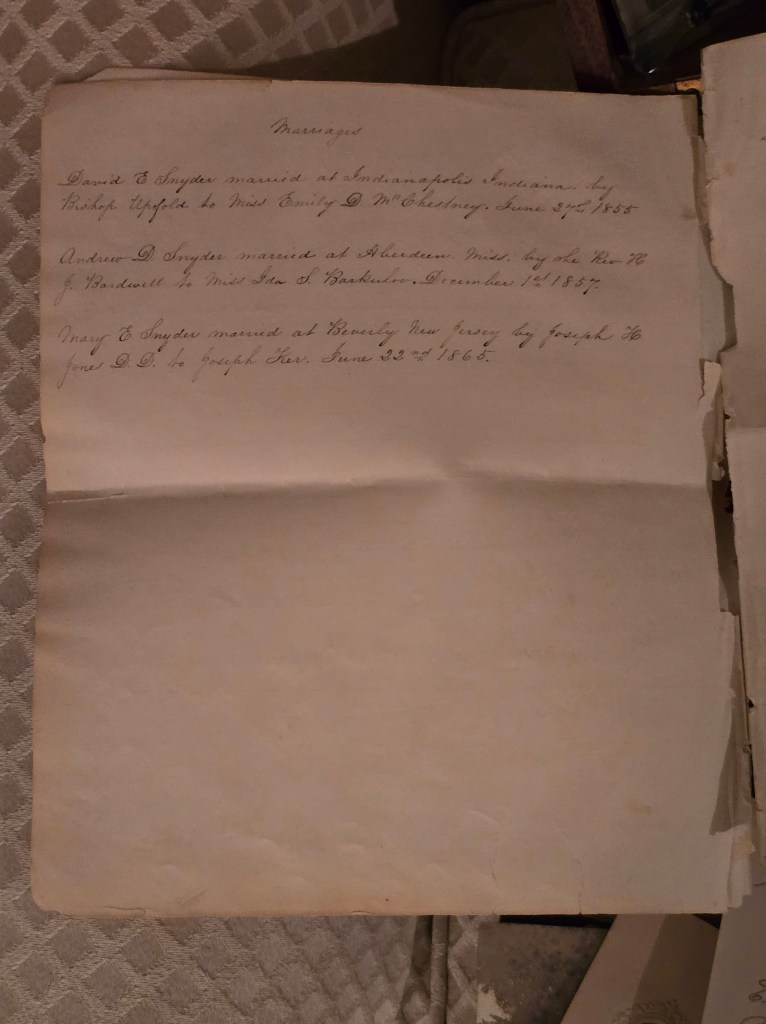 Marriages
David E Snyder married at Indianapolis Indiana. by
Bishop Upfold to Miss Emily D McChestney. June 27th 1855
Andrew D Snyder married at Aberdeen Miss. by the Rev H
J. Bardwell to Miss Ida S. Barkuloo. December 1st 1857.
Mary E Snyder married at Beverly New Jersey by Joseph H
Jones D. D. to Joseph Ker. June 22nd 1865.